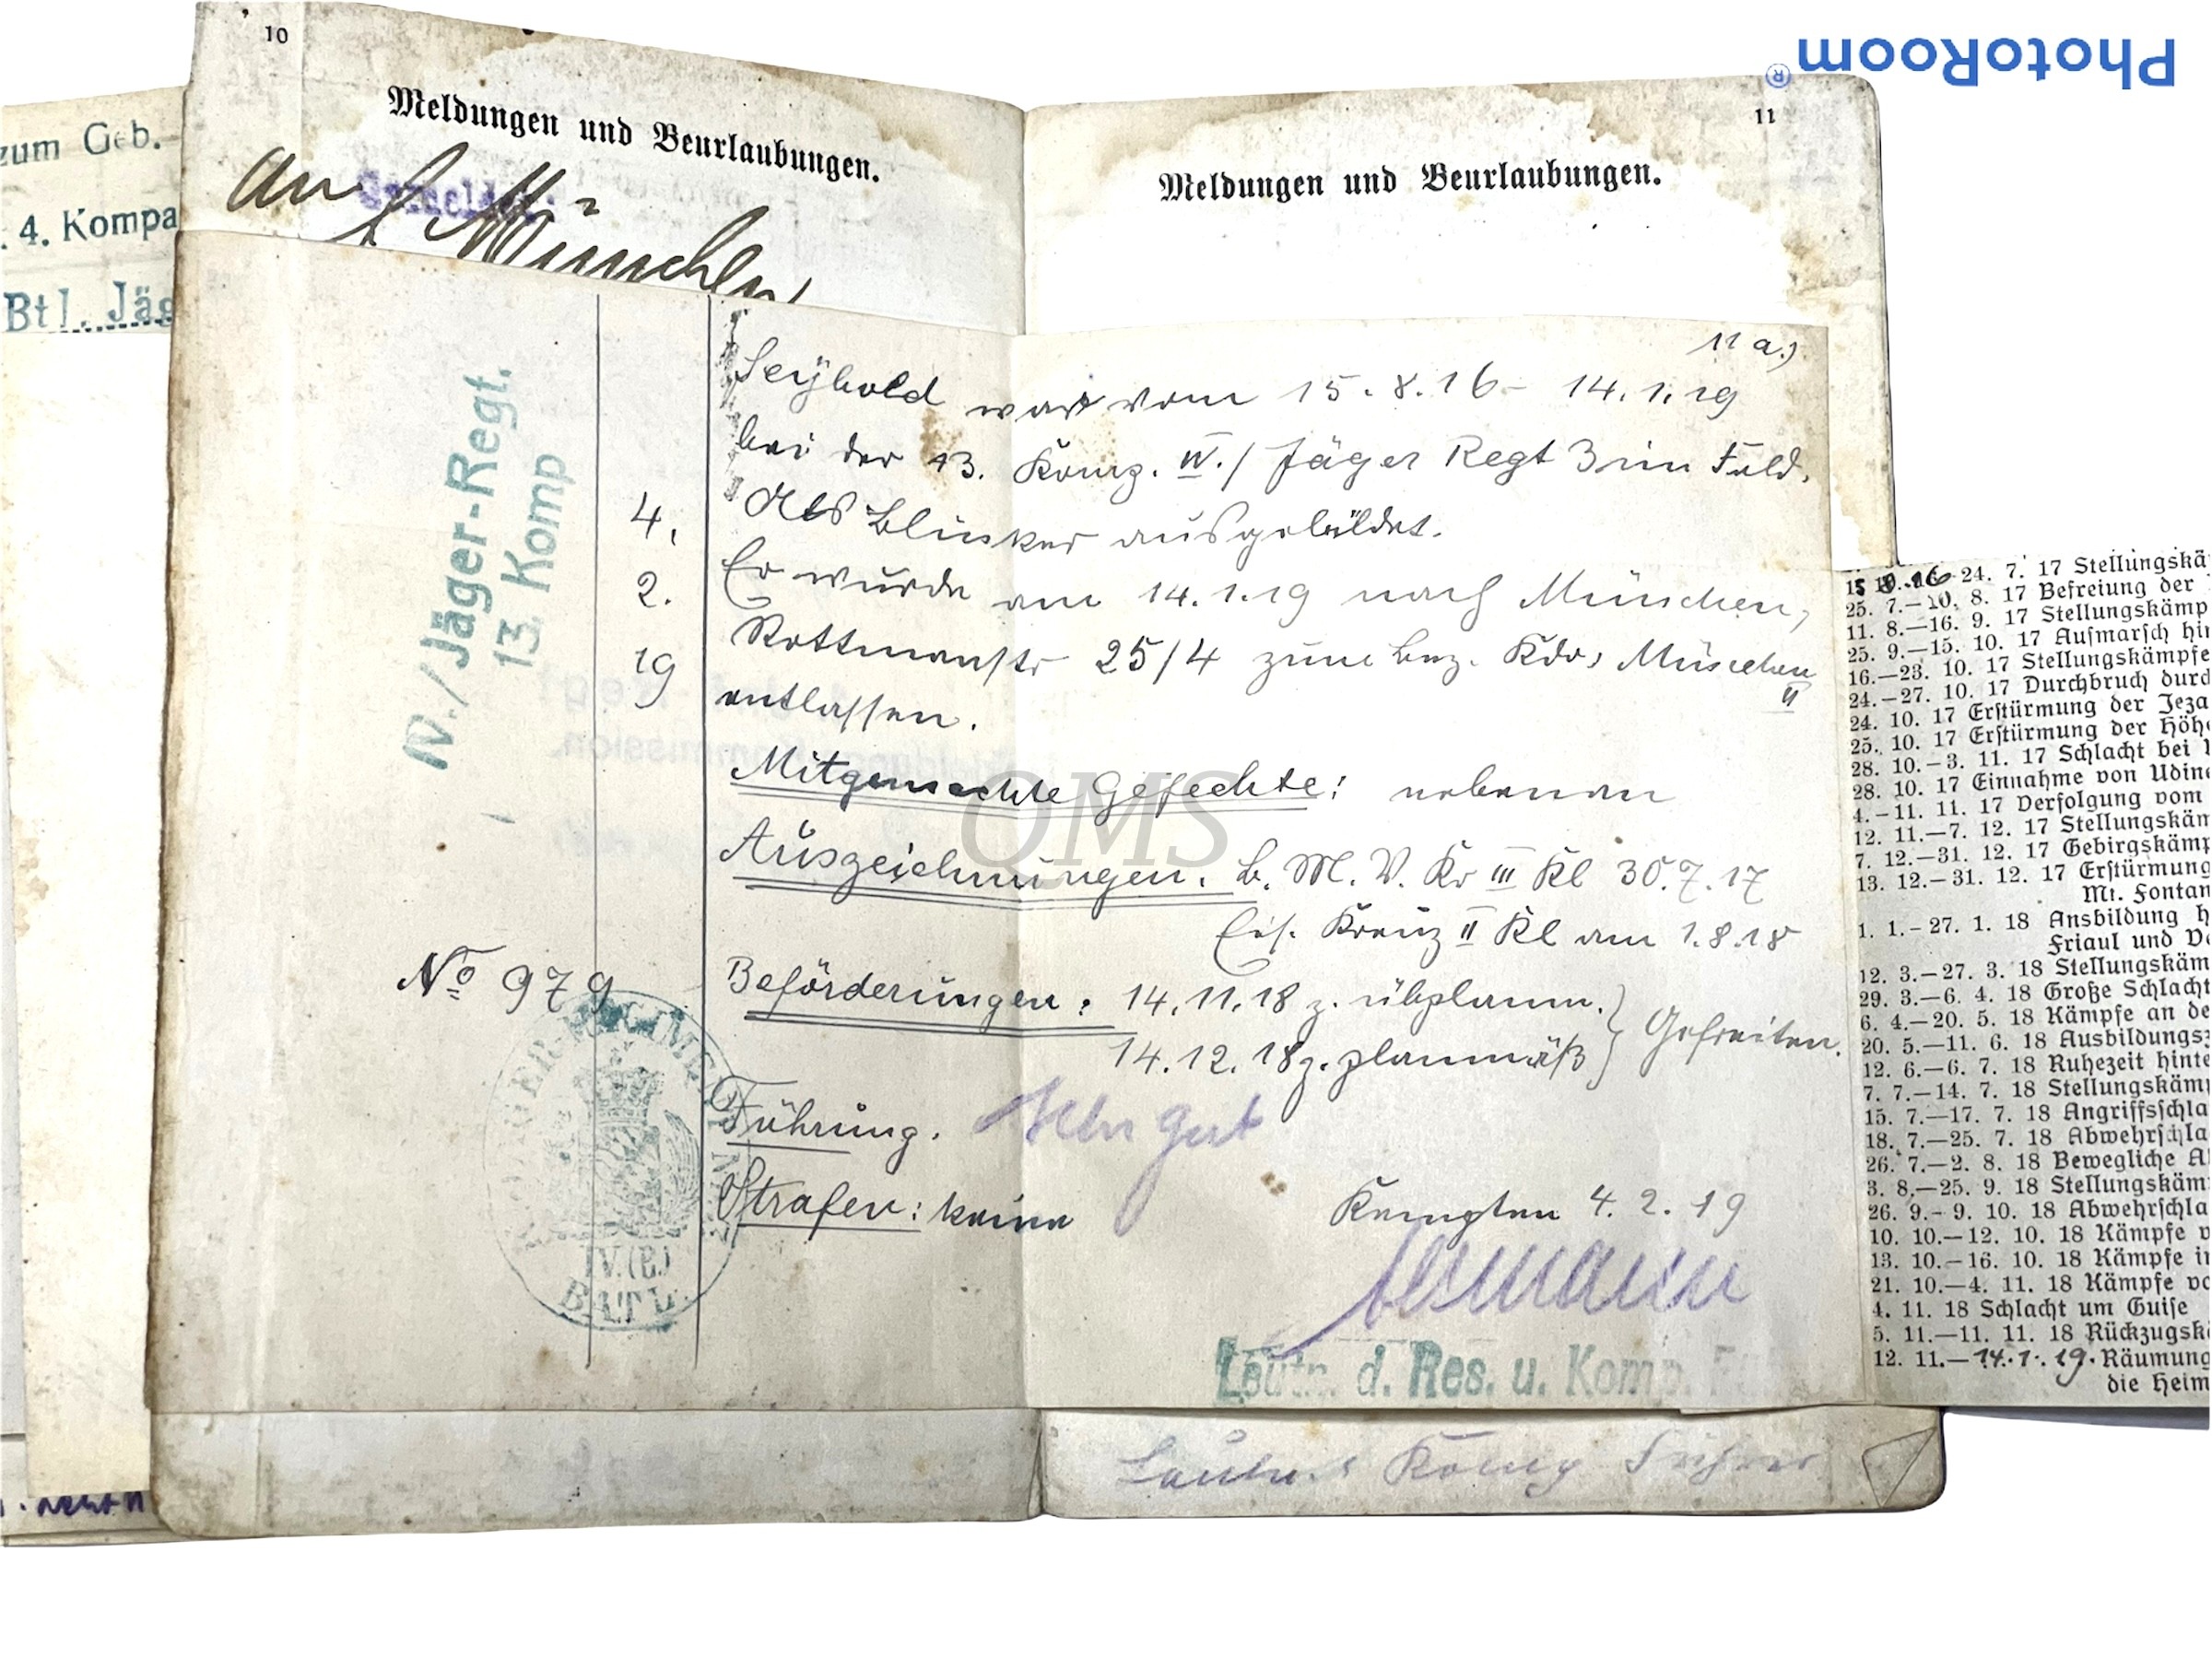 PhotoRoom®
10
Meldungen und Beurlaubungen.
11
Meldungen und Beurlaubungen.
zum Geb.
. 4. Kompa
Btl. Jäg
Gemeldet:
München
11 a.)
Seybold war vom 15.8.16 - 14.1.19
bei der 13. Komp. IV./ Jäger Regt 3 im Feld.
Als Blinker ausgebildet.
Er wurde am 14.1.19 nach München,
Rottmanstr 25/4 zum Bez. Kdo, München II
entlassen.
Mitgemachte Gefechte: nebenan
Auszeichnungen. B. M. V. Kr III Kl 30.7.17
Eis. Kreuz II Kl am 1.8.18
Beförderungen: 14.11.18 z. übplanm. } Gefreiten.
14.12.18 z. planmäß
Führung. sehr gut
Strafen: keine
Kempten 4.2.19
Leutn. d. Res. u. Komp. F
König Führer
4.
2.
19
IV./Jäger-Regt.
13. Komp
No 979
JÄGER-REGIMENT
IV.(E.)
BATL.
15 8.16-24. 7. 17 Stellungskä
25. 7.—10. 8. 17 Befreiung der
11. 8.—16. 9. 17 Stellungskämp
25. 9.—15. 10. 17 Aufmarsch hin
16.—23. 10. 17 Stellungskämpfe
24.—27. 10. 17 Durchbruch durc
24. 10. 17 Erstürmung der Jeza
25. 10. 17 Erstürmung der Höh
28. 10.—3. 11. 17 Schlacht bei
28. 10. 17 Einnahme von Udine
4.—11. 11. 17 Verfolgung vom
12. 11.—7. 12. 17 Stellungskäm
7. 12.—31. 12. 17 Gebirgskämp
13. 12.—31. 12. 17 Erstürmung
Mt. Fontan
1. 1.—27. 1. 18 Ansbildung h
Friaul und V
12. 3.—27. 3. 18 Stellungskäm
29. 3.—6. 4. 18 Große Schlacht
6. 4.—20. 5. 18 Kämpfe an de
20. 5.—11. 6. 18 Ausbildungsz
12. 6.—6. 7. 18 Ruhezeit hinte
7. 7.—14. 7. 18 Stellungskäm
15. 7.—17. 7. 18 Angriffsschla
18. 7.—25. 7. 18 Abwehrschla
26. 7.—2. 8. 18 Bewegliche A
3. 8.—25. 9. 18 Stellungskäm
26. 9.- 9. 10. 18 Abwehrschla
10. 10.—12. 10. 18 Kämpfe v
13. 10.—16. 10. 18 Kämpfe i
21. 10.—4. 11. 18 Kämpfe vo
4. 11. 18 Schlacht um Guise
5. 11.—11. 11. 18 Rückzugsk
12. 11.—14.1.19. Räumung
die Heim
QMS